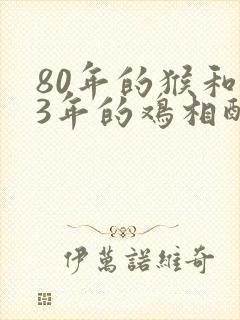 80年的猴和
3年的鸡相配
伊萬諾維奇